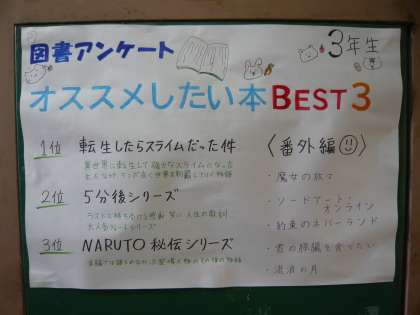 図書アンケート
3年生
オススメしたい本BEST3
1位 転生したらスライムだった件
異世界に転生して
2位 5分後シリーズ
3位 NARUTO秘伝シリーズ
〈番外編〉
・魔女の旅々
・ソードアート・
オンライン
・約束のネバーランド
・君の膵臓を食べたい
・流浪の月